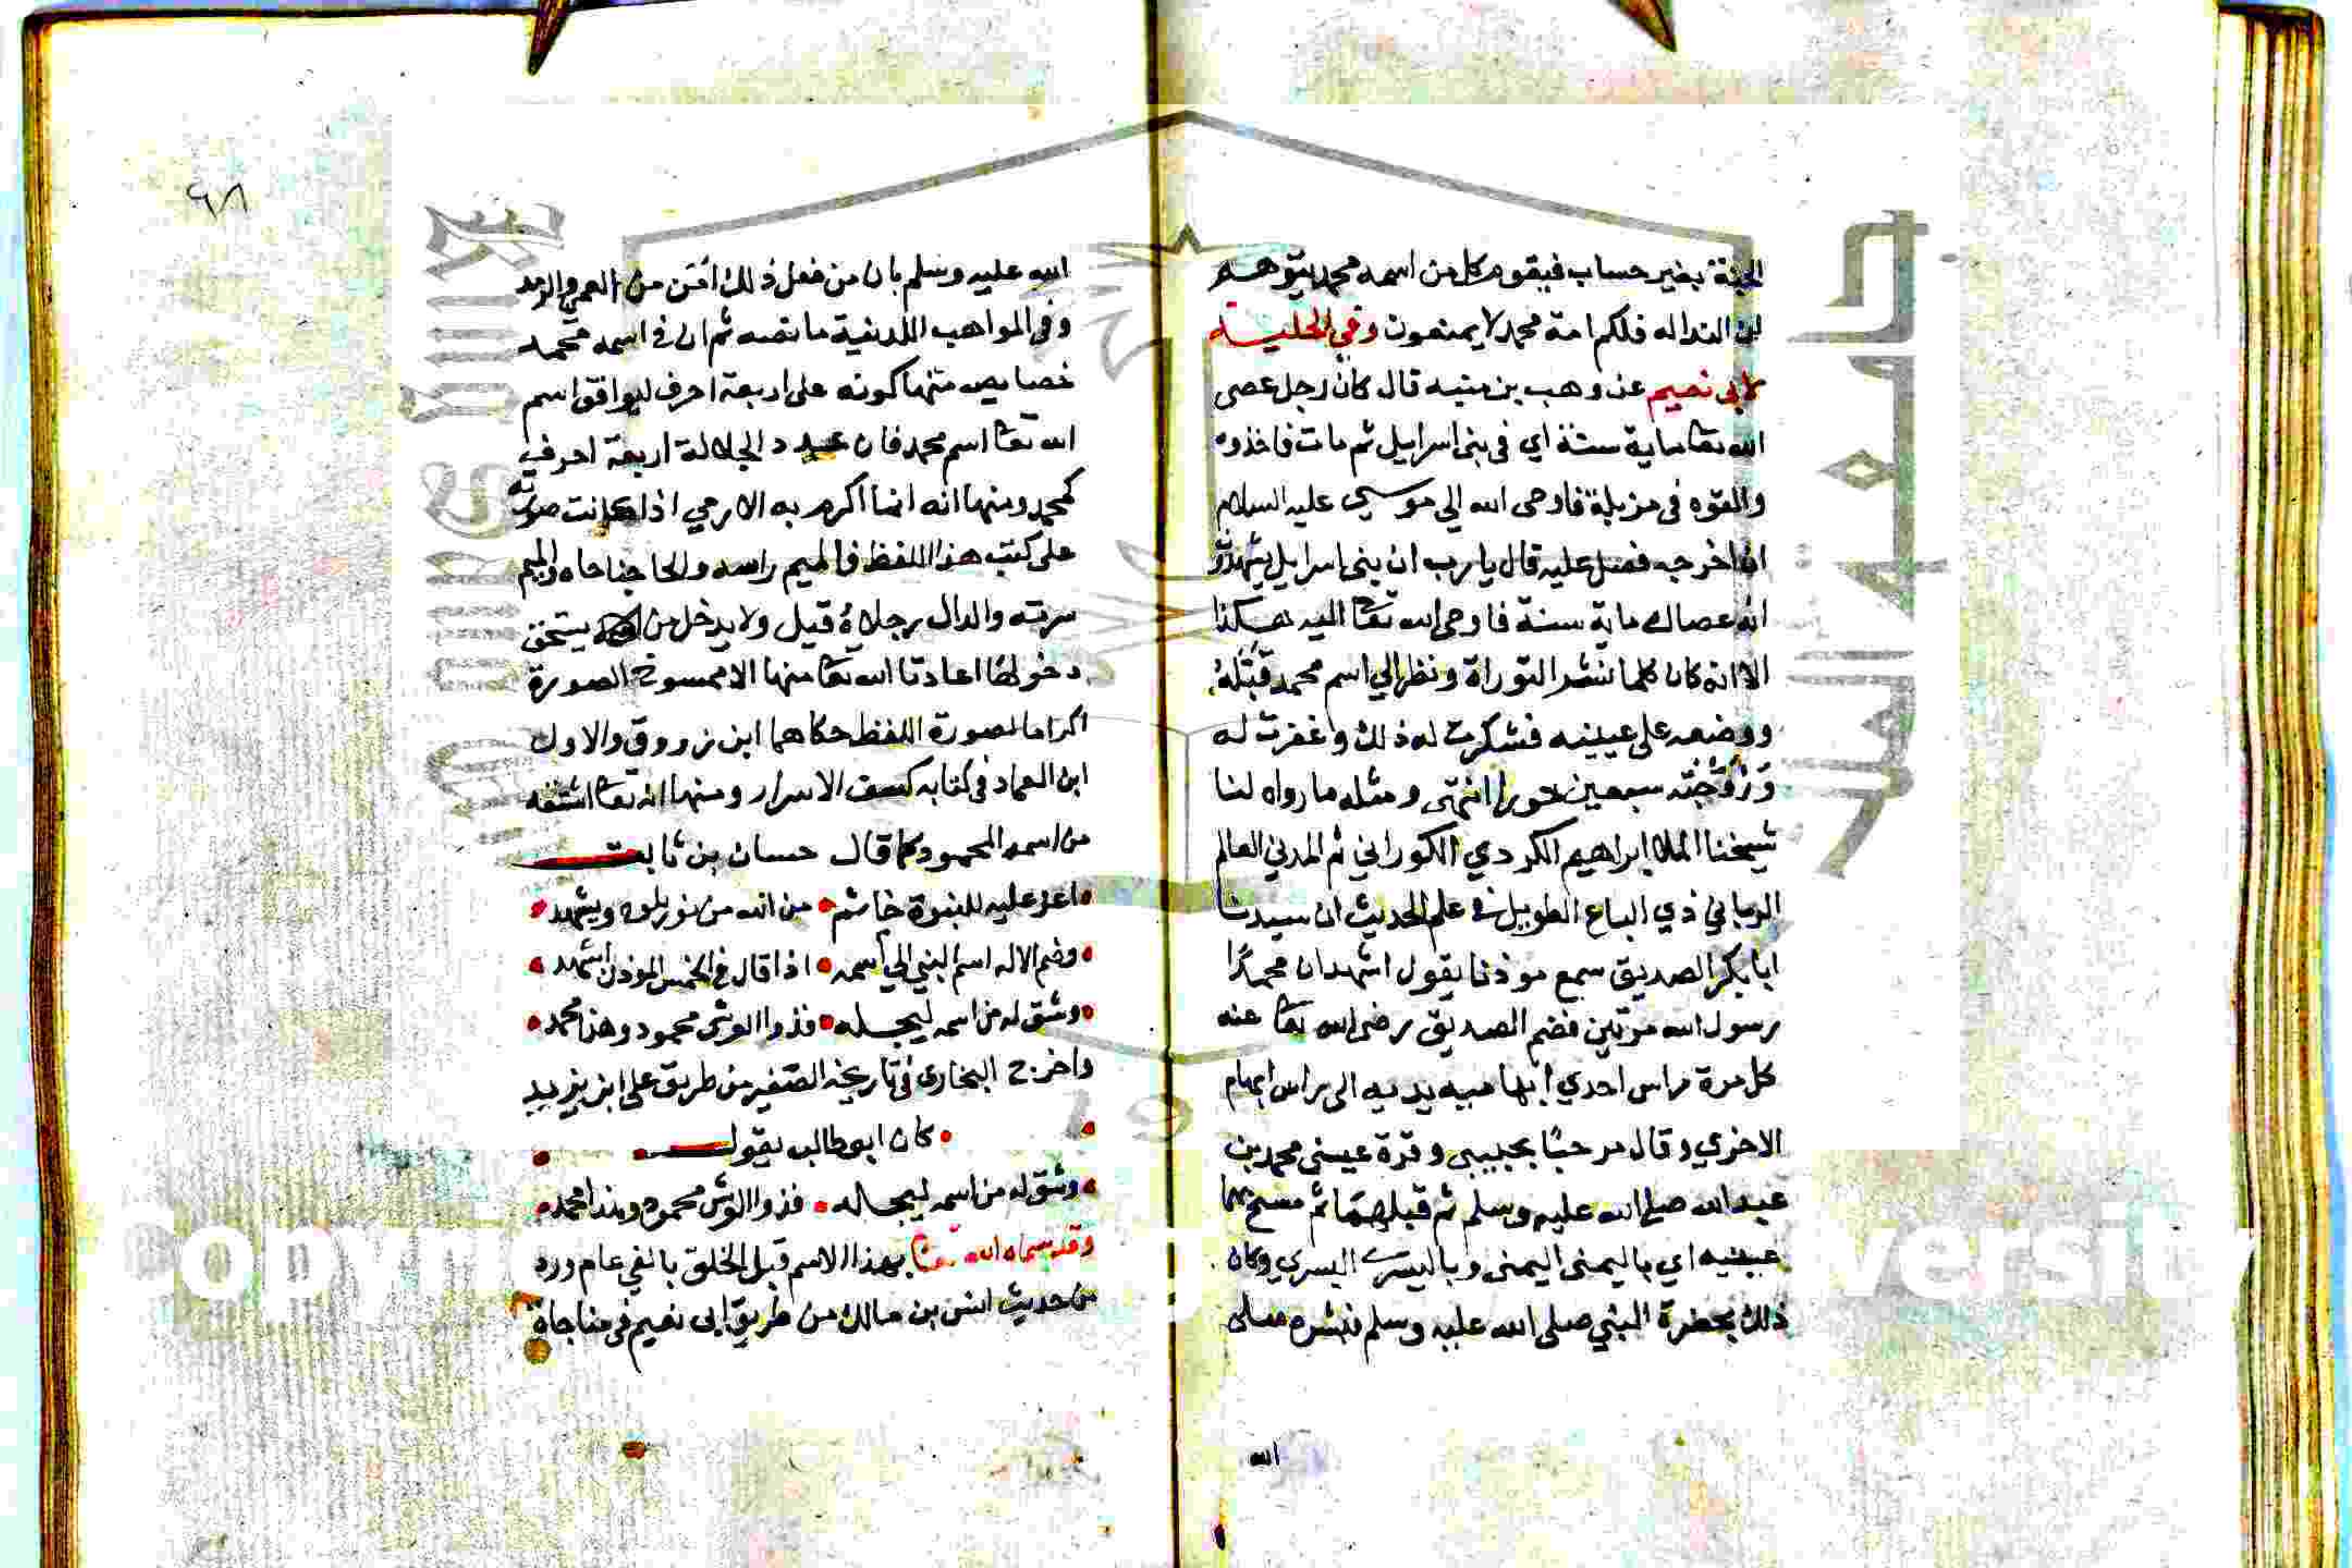 الجنة بغير حساب فيقوم كل من اسمه محمد يتوهم
ان النداله فلكرامة محمد لا يمنعون وفي الحلية
لابي نعيم عن وهب بن منبه قال كان رجل عصى
الله تعا ماية سنة اي في بني اسرايل ثم مات فاخذوه
والقوه في مزبلة فاوحى الله الي موسى عليه السلام
ان اخرجه فصل عليه قال يا رب ان بني اسرايل يشهدون
انه عصاك ماية سنة فاوحى الله تعا اليه هكذا
الا انه كان كلما نشر التوراة ونظر الي اسم محمد قبّله
ووضعه على عينيه فشكرت له ذلك وغفرت له
وَزَوَّجْتُه سبعين حورا انتهى ومثله ما رواه لنا
شيخنا الملا ابراهيم الكردي الكوراني ثم المدني العالم
الرباني ذي الباع الطويل في علم الحديث ان سيدنا
ابا بكر الصديق سمع موذنا يقول اشهد ان محمدًا
رسول الله مرتين فضم الصديق رضى الله تعا عنه
كل مرة راس احدي ابهاميه يديه الى راس ابهام
الاخري وقال مرحبًا بحبيبي وقرة عيني محمد بن
عبد الله صلى الله عليه وسلم ثم قبلهما ثم مسح بهما
عينيه اي باليمنى اليمنى وباليسرى اليسري وكان
ذلك بحضرة النبي صلى الله عليه وسلم فبشره صلى
الله
٦٨
الله عليه وسلم بان من فعل ذلك امن من العمى والرمد
وفي المواهب اللدنية ما نصه ثم ان في اسمه محمد
خصايص منها كونه على اربعة احرف ليوافق اسم
الله تعا اسم محمد فان عدد الجلالة اربعة احرف
كمحمد ومنها انه انما اكرم به الادمي اذا كانت صورته
على كتب هذا اللفظ فالميم راسه والحا جناحاه والميم
سرته والدال رجلاهُ قيل ولا يدخل من يستحق
دخولها اعاذنا الله تعا منها الا ممسوخ الصورة
اكراما لصورة اللفظ حكاهما ابن مرزوق والاول
ابن العماد في كتابه كشف الاسرار ومنها انه تعا اشتقه
من اسمه المحمود كما قال حسان بن ثابت
اغر عليه للنبوة خاتم من الله من نور يلوح ويشهد
وضم الاله اسم النبي الي اسمه اذا قال في الخمس الموذن اشهد
وشق له من اسمه ليجله فذوا العرش محمود وهذا محمد
واخرج البخاري في تاريخه الصغير من طريق على ابن يزيد
كان ابو طالب يقول
وشق له من اسمه ليجله فذوا العرش محمود وهذا محمد
وقد سماه الله تعا بهذا الاسم قبل الخلق بالفي عام ورد
من حديث انس بن مالك من طريق ابى نعيم في مناجاة